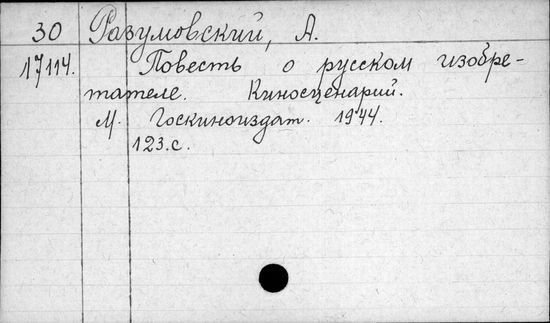 30 Разумовский, А.
17114. Повесть о русском изобре-
тателе. Киносценарий.
М. Госкиноиздат. 1944.
123.с.